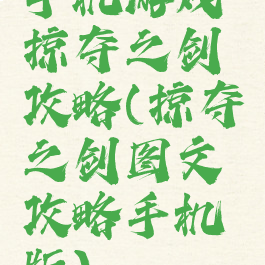 手机游戏
掠夺之剑
攻略(掠夺
之剑图文
攻略手机
版)